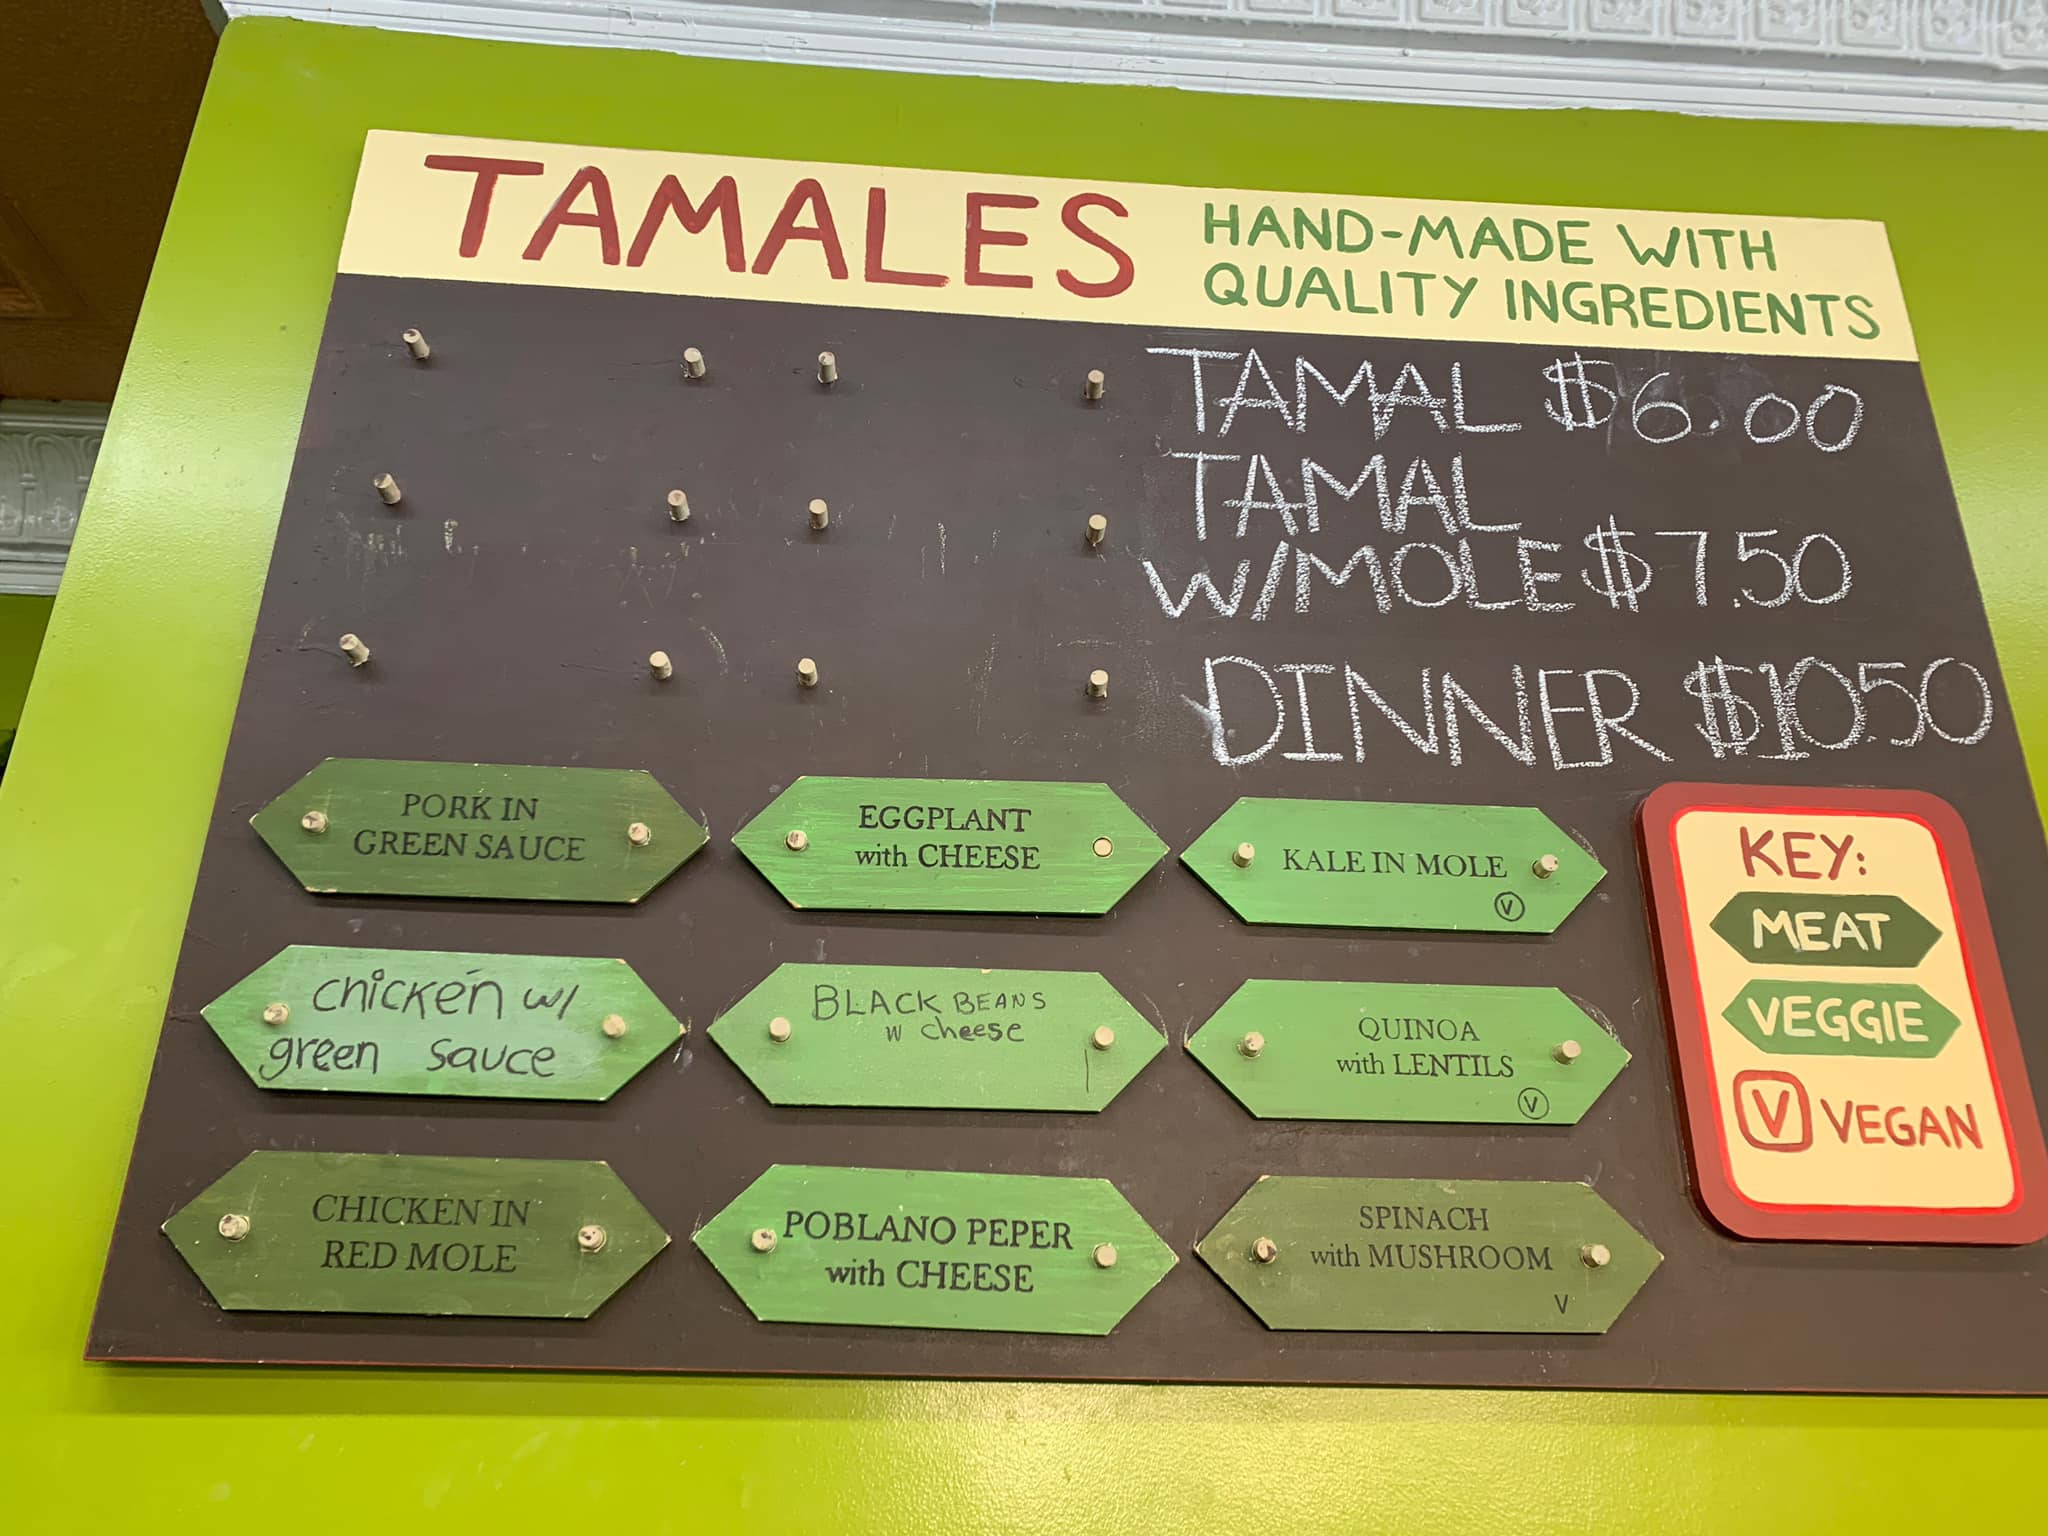 TAMALES
HAND-MADE WITH
QUALITY INGREDIENTS
TAMAL $6.00
TAMAL
W/MOLE $7.50
DINNER $10.50
PORK IN
GREEN SAUCE
EGGPLANT
with CHEESE
KALE IN MOLE
V
chicken w/
green sauce
BLACK BEANS
w cheese
QUINOA
with LENTILS
V
CHICKEN IN
RED MOLE
POBLANO PEPER
with CHEESE
SPINACH
with MUSHROOM
V
KEY:
MEAT
VEGGIE
V VEGAN